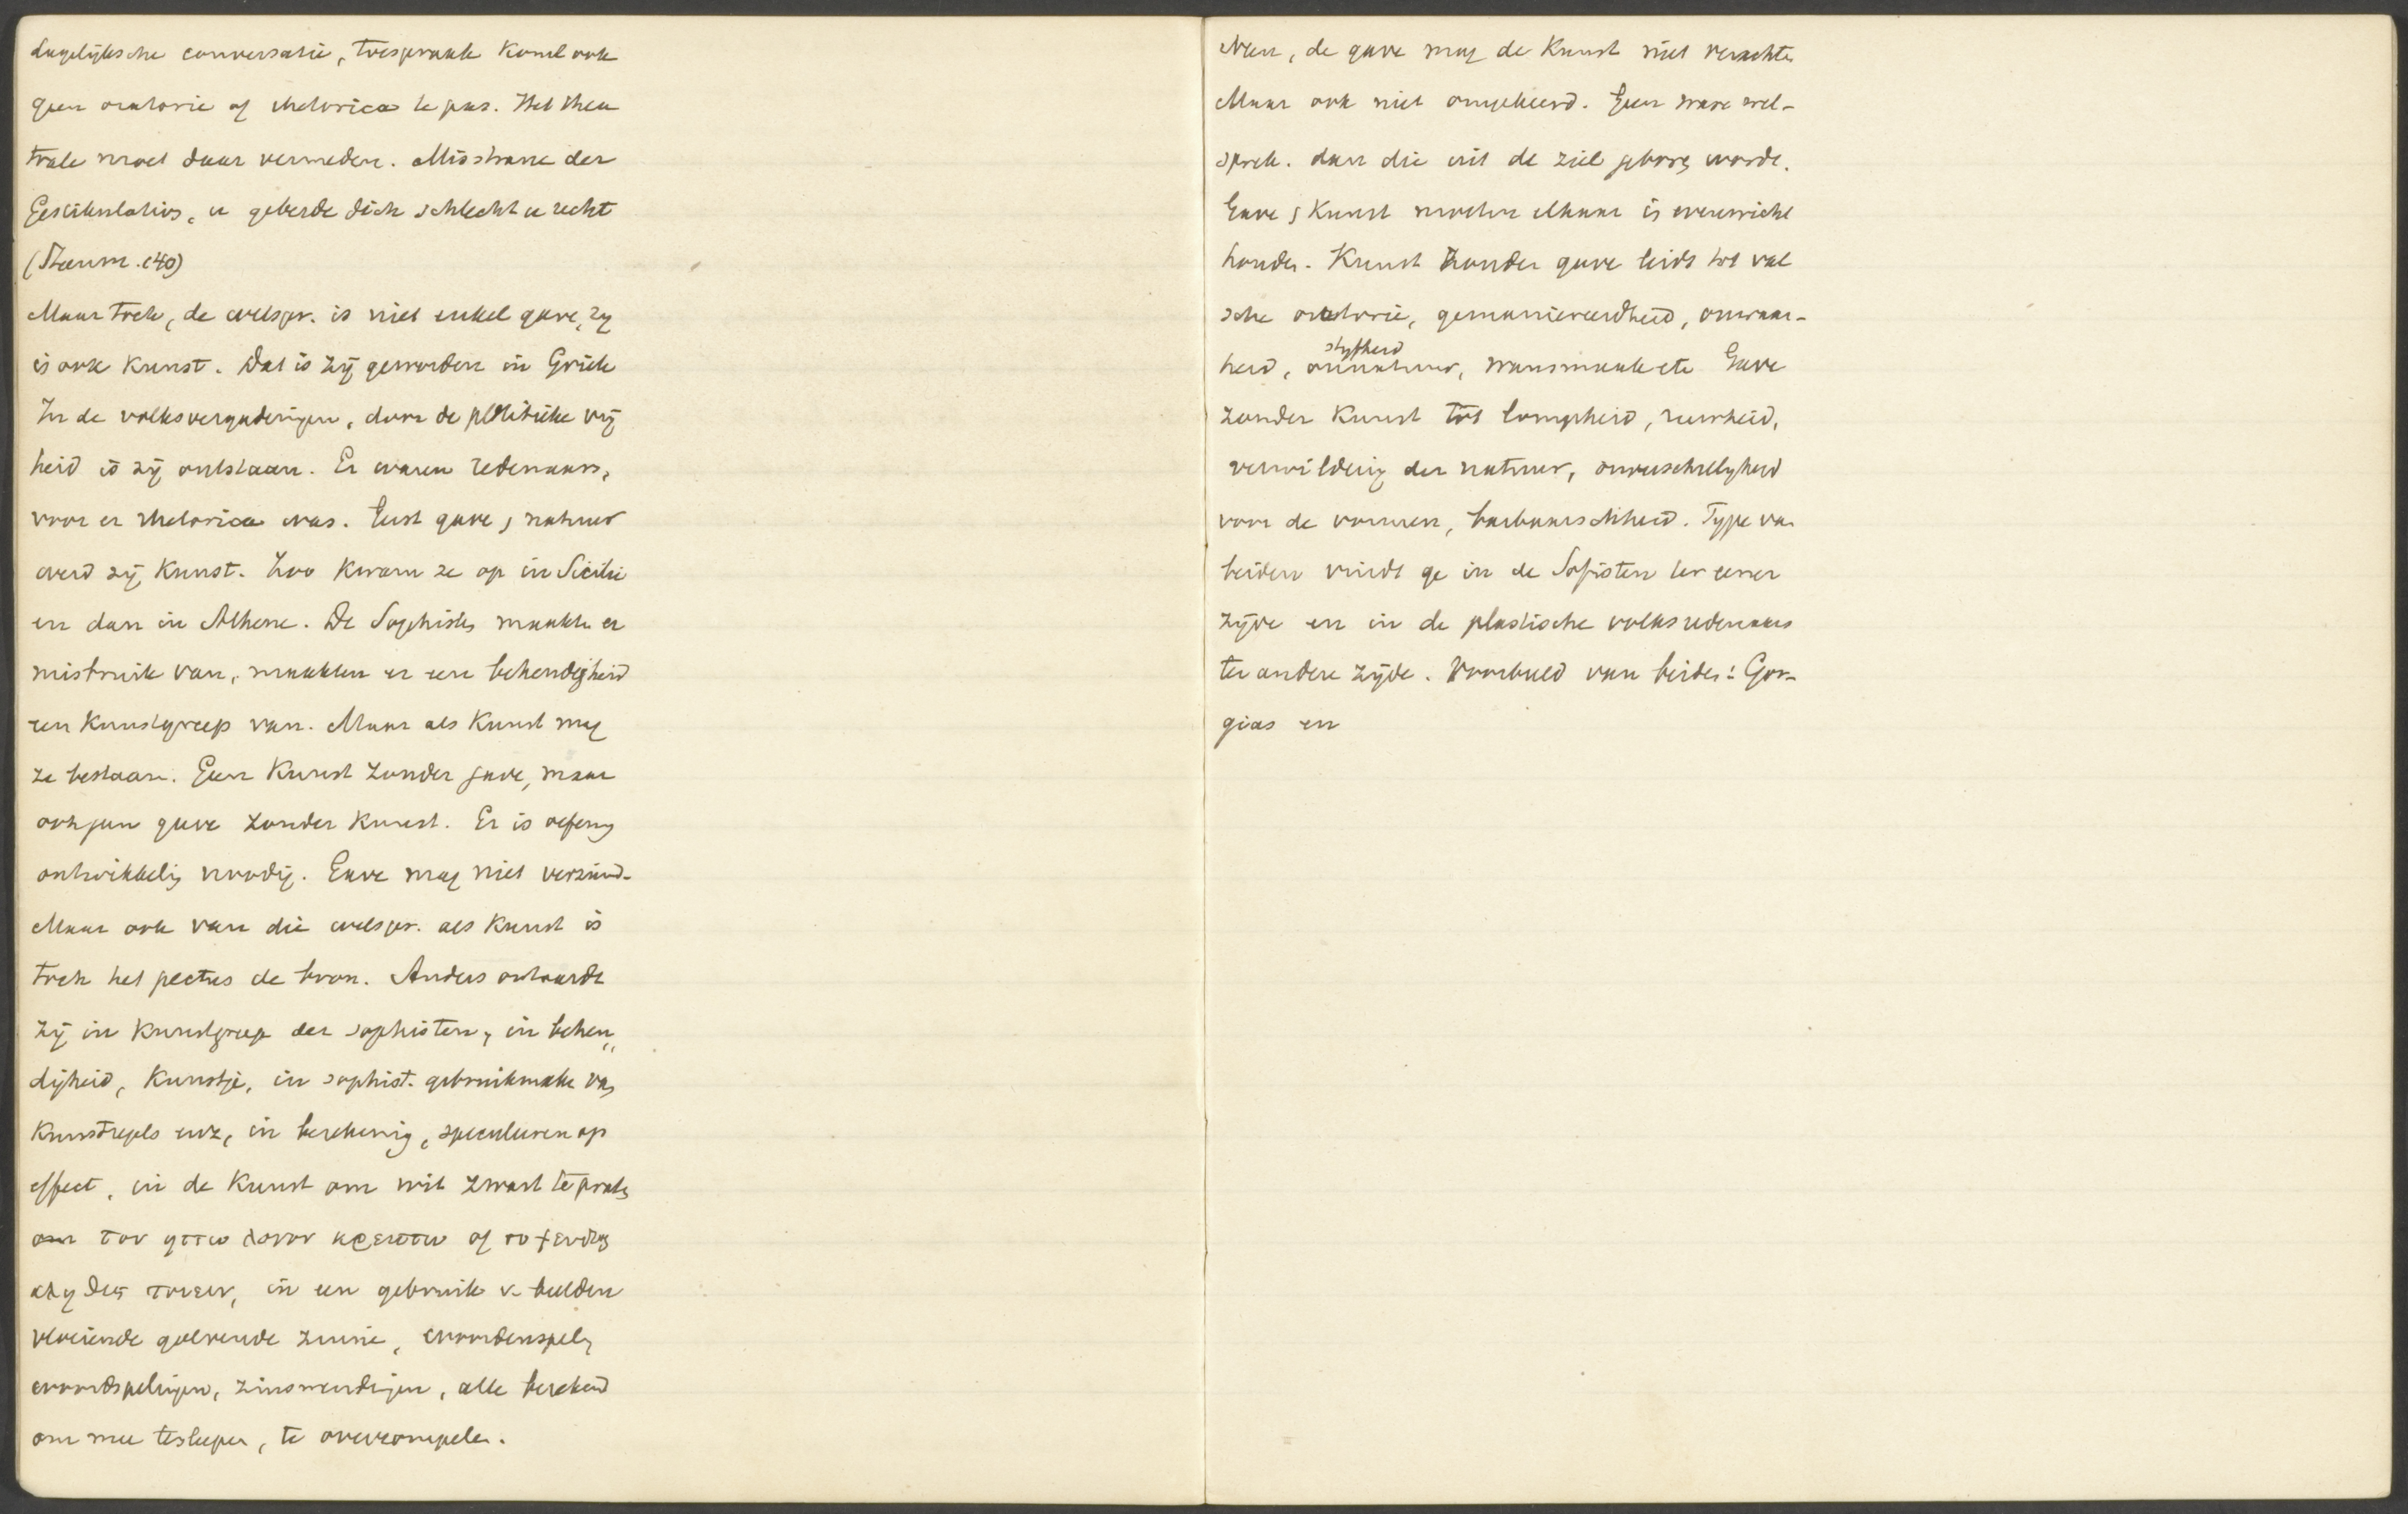 dagelijksche conversatie, toespraak komt ook
geen oratorie of rhetorica te pas. Het thea
trale moet daar vermeden. Misstraue der
Gestikulation, u geberde dich schlecht u recht
(Theorem. 140)
Maar toch, de welspr. is niet enkel gave, zy
is ook Kunst. Dat is zij geworden in Griek
In de volksvergaderingen, door de politieke vrij
heid is zij ontstaan. Er waren redenaars,
voor er rhetorica was. Eerst gave, natuur
werd zij Kunst. Zoo kwam ze op in Sicilie
en dan in Athene. De Sophisten maakten er
misbruik van, maakten er een behendigheid
een Kunstgreep van. Maar als Kunst mag
ze bestaan. Geen Kunst zonder gave, maar
ook geen gave zonder Kunst. Er is oefening
ontwikkeling noodig. Gave mag niet verzuimd.
Maar ook van die welspr. als Kunst is
toch het pectus de bron. Anders ontaardt
zij in Kunstgreep der sophisten, in behen„
digheid, Kunstje, in sophist. gebruikmake van
Kunstregels enz, in berekening, speculeeren op
effect, in de Kunst om wit zwart te praten
om τον ηττω λογον κρειττω of το ψευδος
αληθες ποιειν, in een gebruik v. beelden
vloeiende golvende zinne, woordenspelen
woordspelingen, zinswendingen, alle berekend
om mee tesleepen, te overrompelen.
Neen, de gave mag de Kunst niet verachten
Maar ook niet omgekeerd. Geen ware wel-
sprek. dan die uit de ziel geboren wordt.
Gave, Kunst moeten elkaar in evenwicht
houden. Kunst zonder gave leidt tot val
sche oratorie, gemaniereerdheid, onwaar-
heid, stijfheid onnatuur, wansmaak etc Gave
zonder Kunst tot lompheid, ruwheid,
verwildering der natuur, onverschilligheid
voor de vormen, barbaarschheid. Type van
beiden vindt ge in de Sofisten ter eener
zijde en in de plastische volksredenaars
ter andere zijde. Voorbeeld van beiden: Gor-
gias en